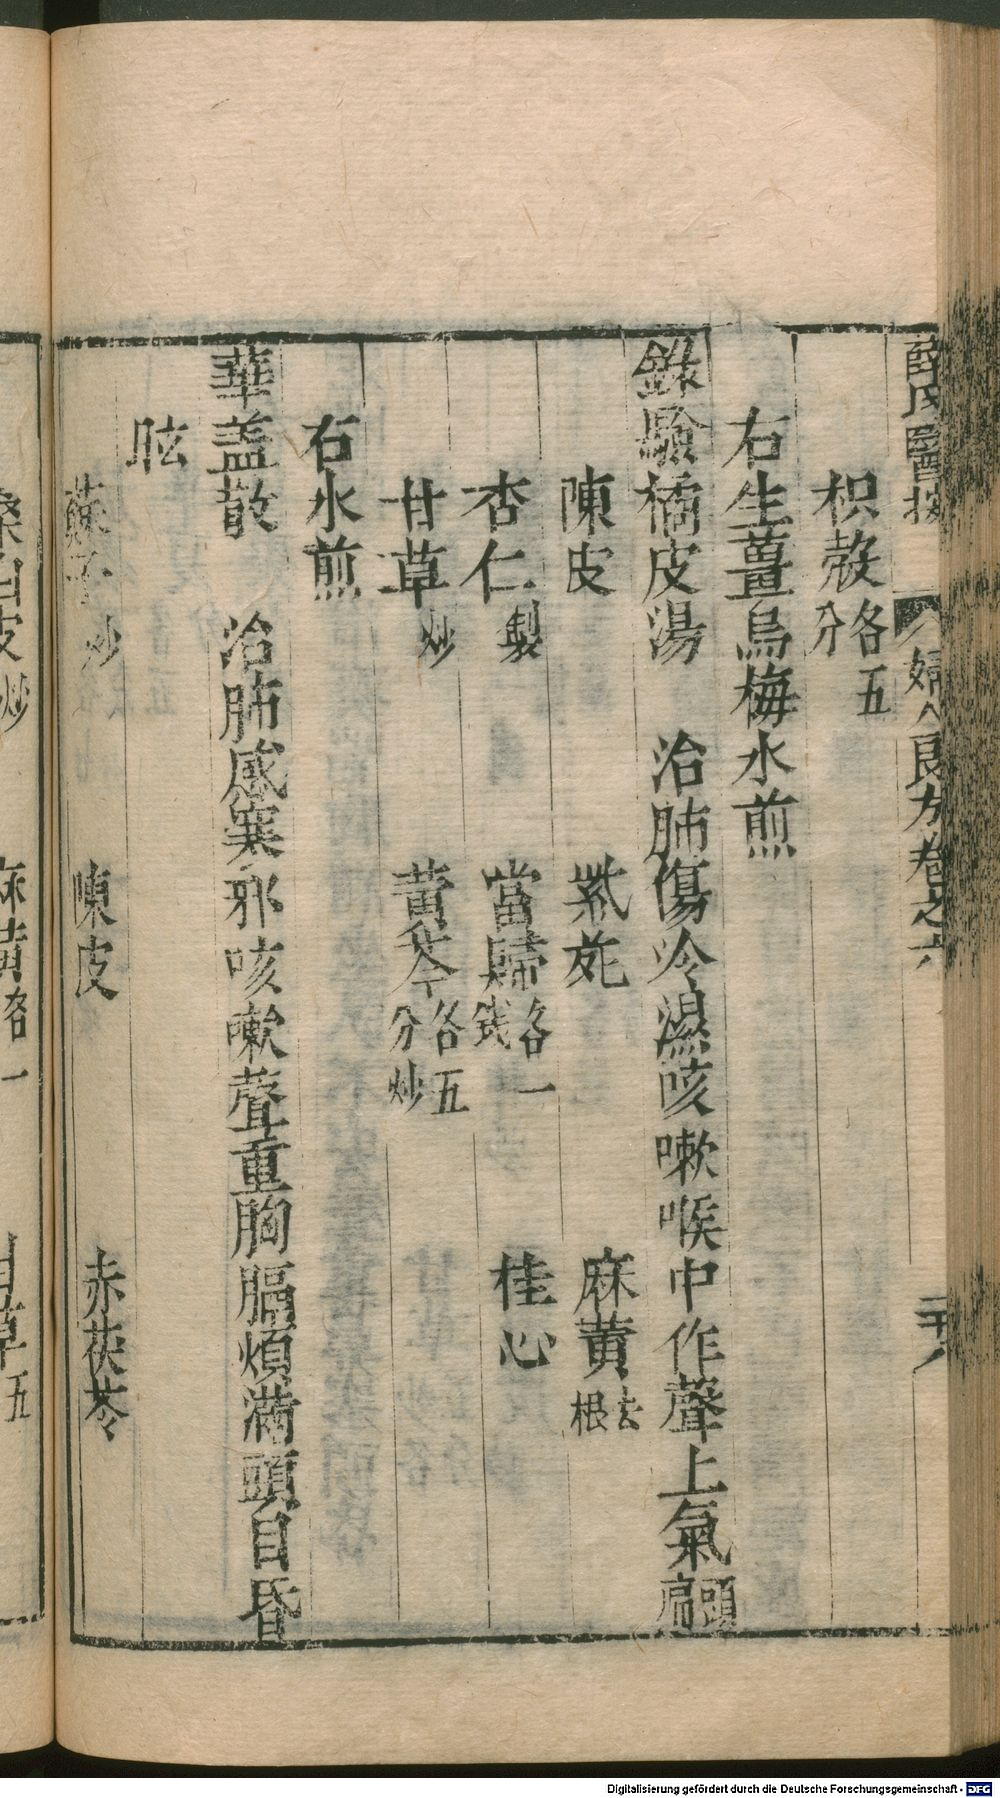 薛氏醫按 婦人良方卷之六
枳殼各五分
右生薑烏梅水煎
錄驗橘皮湯 治肺傷冷濕咳嗽喉中作聲上氣頭痛
陳皮 紫菀 麻黄去根
杏仁製 當歸各一錢 桂心
甘草炒 黄芩各五分炒
右水煎
華盖散 治肺感寒邪咳嗽聲重胸膈煩滿頭目昏
眩
蘇子炒 陳皮 赤茯苓
桑白皮炒 麻黄各一 甘草五
Digitalisierung gefördert durch die Deutsche Forschungsgemeinschaft - DFG